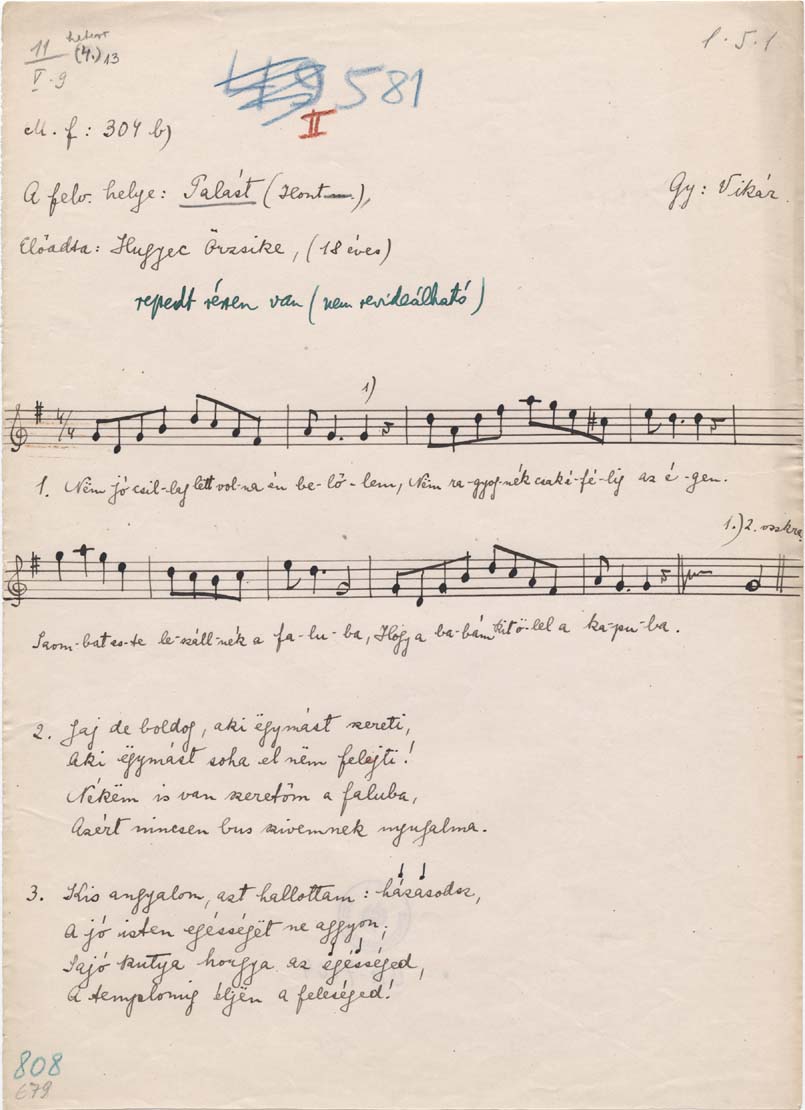 11 (4.) 13
V. 9
1. 5. 1
581
II
M. f: 304 b)
A felv. helye: Palást (Hont),
Gy: Vikár.
Előadta: Hugyec Örzsike, (18 éves)
repedt részen van (nem revideálható)
1)
4/4
1. Nëm jó csil-lag lett vol-na én be-lő-lem, Nëm ra-gyog-nék csak é-fé-lig az é-gen.
1.) 2. vsskra
Szom-bat es-te le-száll-nék a fa-lu-ba, Hogy a ba-bám kit ö-lel a ka-pu-ba.
2. Jaj de boldog, aki ëgymást szereti,
Aki ëgymást soha el nëm felejti!
Nékëm is van szeretőm a faluba,
Azért nincsen bus szivemnek nyugalma.
3. Kis angyalom, azt hallottam: házasodsz,
A jó isten egésségët ne aggyon;
Sajó kutya horgya az egésséged,
A templomig éljën a feleséged!
808
679